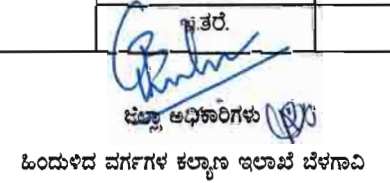 ಇ.ತರೆ.
ಜಿಲ್ಲಾ ಅಧಿಕಾರಿಗಳು
ಹಿಂದುಳಿದ ವರ್ಗಗಳ ಕಲ್ಯಾಣ ಇಲಾಖೆ ಬೆಳಗಾವಿ